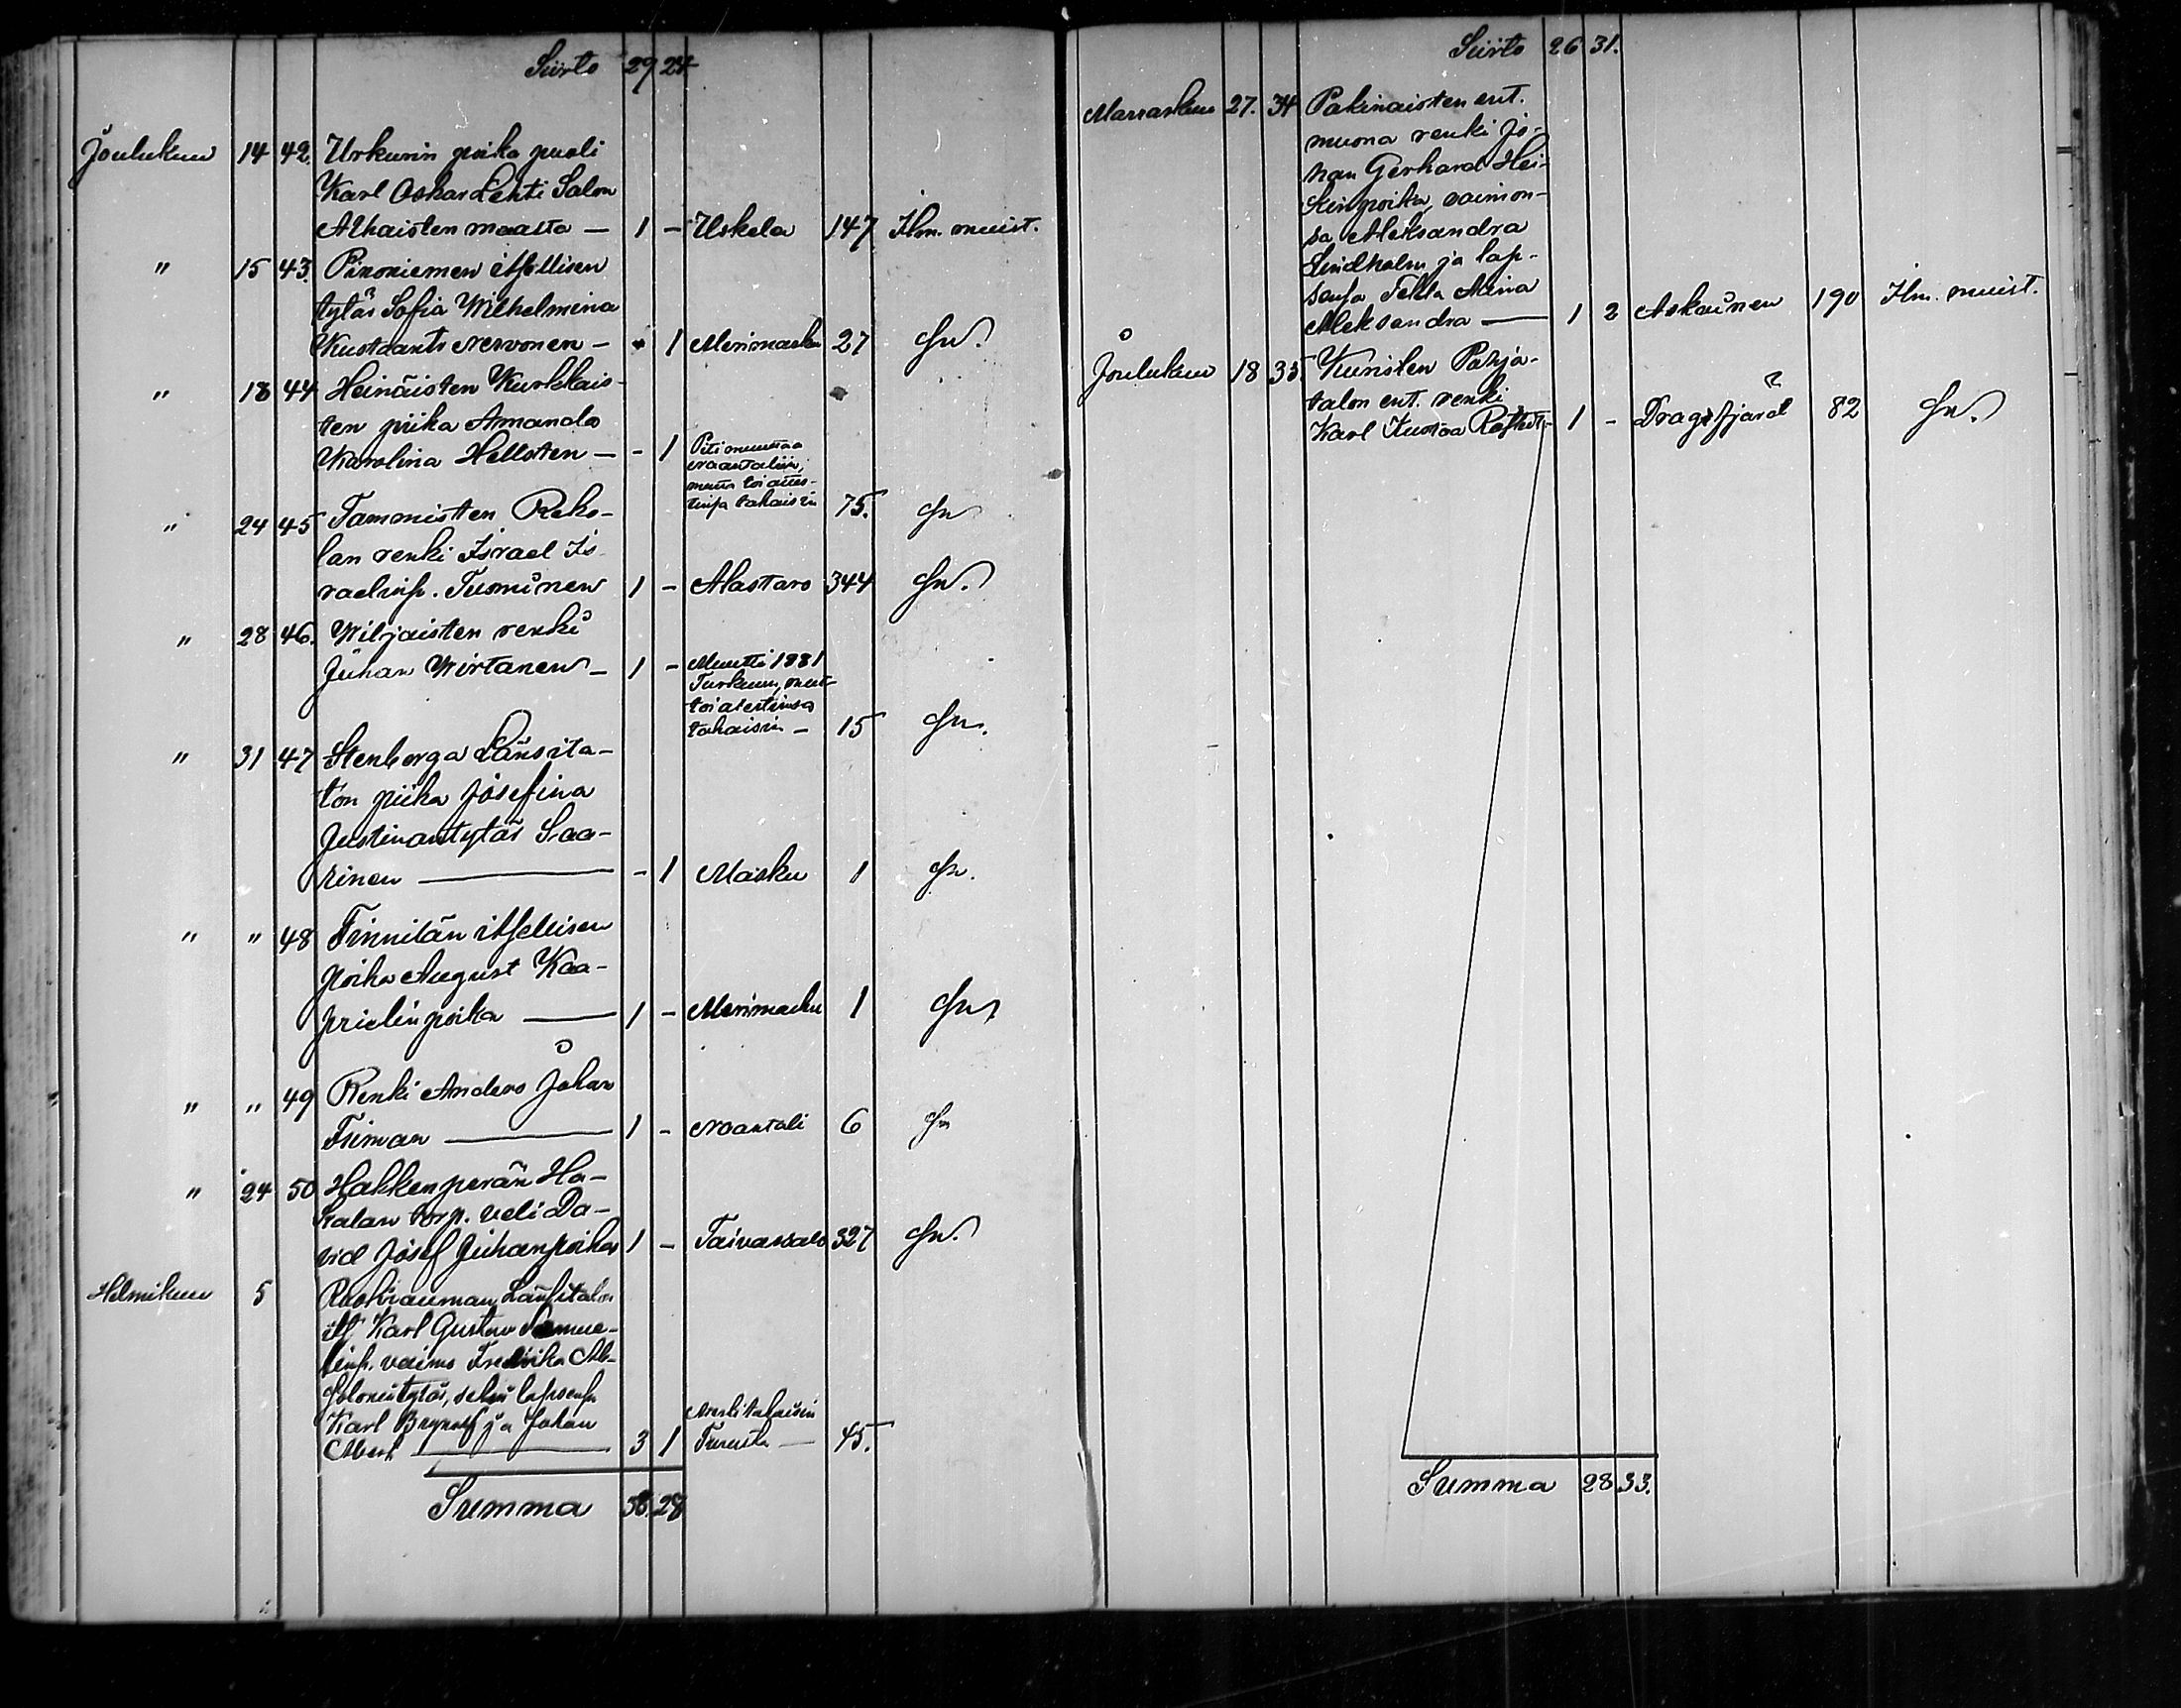 Siirto 29 24
Joulukuu 14 42. Urkurin poika puoli
Karl Oskar Lehti Salon
Alhaisten maalta — 1 - Uskela 147 Ilm. muist.
" 15 43. Pironiemen itsellisen
tytär Sofia Wilhelmina
Kustaants Nervonen — - 1 Merimasku 27 Sn.
" 18 44 Heinäisten Kurkkais-
ten piika Amanda
Karolina Hellsten — - 1 Piti muuttaa
Naantaliin,
mutta toi attes-
tinsa takaisin 75. Sn
" 24 45 Tammisten Reko-
lan renki Israel Is-
raelinp. Tuominen 1 - Alastaro 344 Sn.
" 28 46. Wiljaisten renki
Juhan Wirtanen — 1 - Muutti 1881
Turkuun, mut-
toi atestinsa
takaisin — 15 Sn.
" 31 47 Stenberga Länsita-
lon piika Josefina
Justinantytär Saa-
rinen — - 1 Masku 1 Sn.
" " 48 Finnilän itsellisen
poika August Kaa-
prielinpoika — 1 - Merimasku 1 Sn.
" " 49 Renki Anders Johan
Friman — 1 - Naantali 6 Sn
" 24 50 Hakkenperän Ha-
kalan torp. veli Da-
vid Josef Juhanpoika 1 - Taivassalo 327 Sn.
Helmikuu 5 Raskinauman Länsitalon
itl. Karl Gustav Samue-
linp. vaimo Fredrika Ab-
solomintytär, sekä lapsensa
Karl Brynolf ja Johan
Albert — 3 1 takaisin
Turusta — 45.
Summa 38. 28
Siirto 26 31.
Marraskuu 27. 34 Pakinaisten ent.
muona renki Jo-
han Gerhard Hei-
kinpoika, vaimon-
sa Aleksandra
Lindholm ja lap-
sensa Tekla Aina
Aleksandra — 1 2 Askainen 190 Ilm. muist.
Joulukuu 18 35. Kuristen Pohja-
talon ent. renki
Karl Kustaa — 1 - Dragsfjärd 82 Sn.
Summa 28 33.